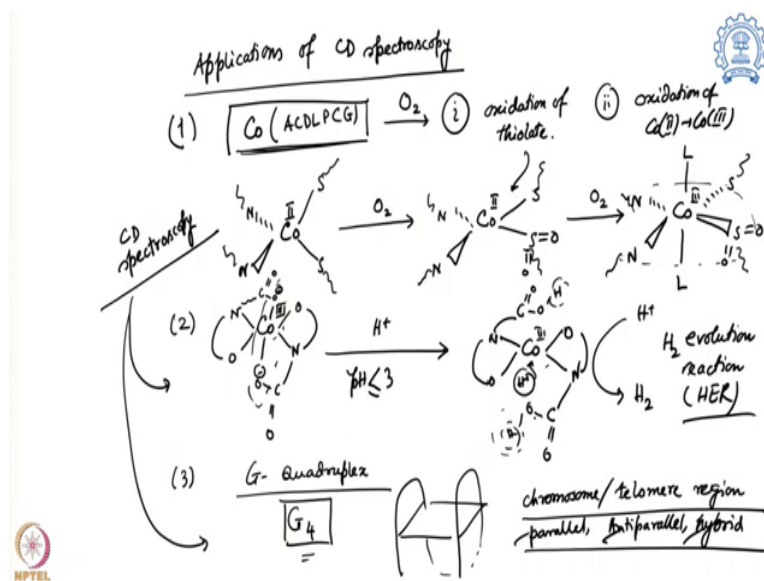 Applications of CD spectroscopy
(1) Co(ACDLPCG) O₂ → (i) oxidation of thiolate. (ii) oxidation of Co(II)→Co(III)
CD spectroscopy
N N Co II S S O₂ → N N Co II S S=O O O₂ → L N N Co III S S=O O L
(2) N C O O Co III O O N O C O H⁺ → pH≤3 O C O H N Co III O O H⁺ N O H C O H⁺ → H₂ H₂ evolution reaction (HER)
(3) G- quadruplex
G₄
chromosome/telomere region
parallel, Antiparallel, hybrid
NPTEL